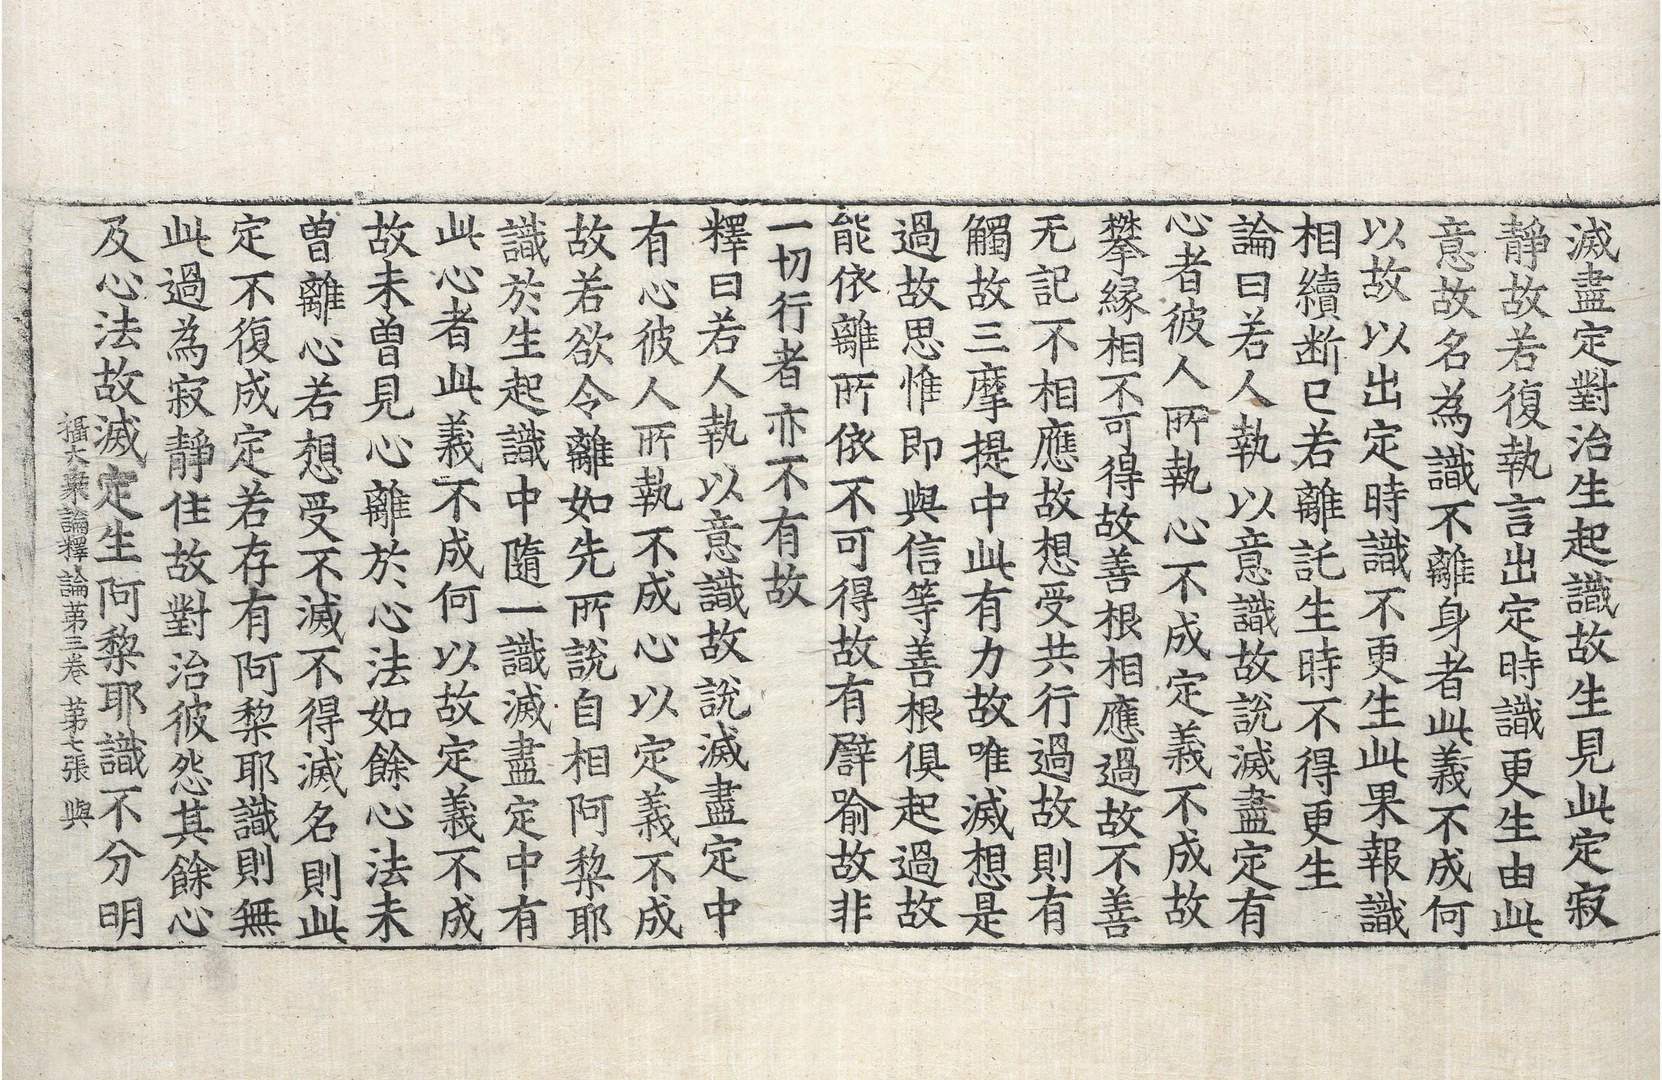 滅盡定對治生起識故生見此定寂
靜故若復執言出定時識更生由此
意故名為識不離身者此義不成何
以故以出定時識不更生此果報識
相續断已若離託生時不得更生
論曰若人執以意識故說滅盡定有
心者彼人所執心不成定義不成故
攀緣相不可得故善根相應過故不善
无記不相應故想受共行過故則有
觸故三摩提中此有力故唯滅想是
過故思惟即與信等善根俱起過故
能依離所依不可得故有譬喻故非
一切行者亦不有故
釋曰若人執以意識故說滅盡定中
有心彼人所執不成心以定義不成
故若欲令離如先所說自相阿黎耶
識於生起識中隨一識滅盡定中有
此心者此義不成何以故定義不成
故未曽見心離於心法如餘心法未
曽離心若想受不滅不得滅名則此
定不復成定若存有阿黎耶識則無
此過為寂靜住故對治彼怨其餘心
及心法故滅定生阿黎耶識不分明
攝大乗論釋論苐三卷 苐七張 與